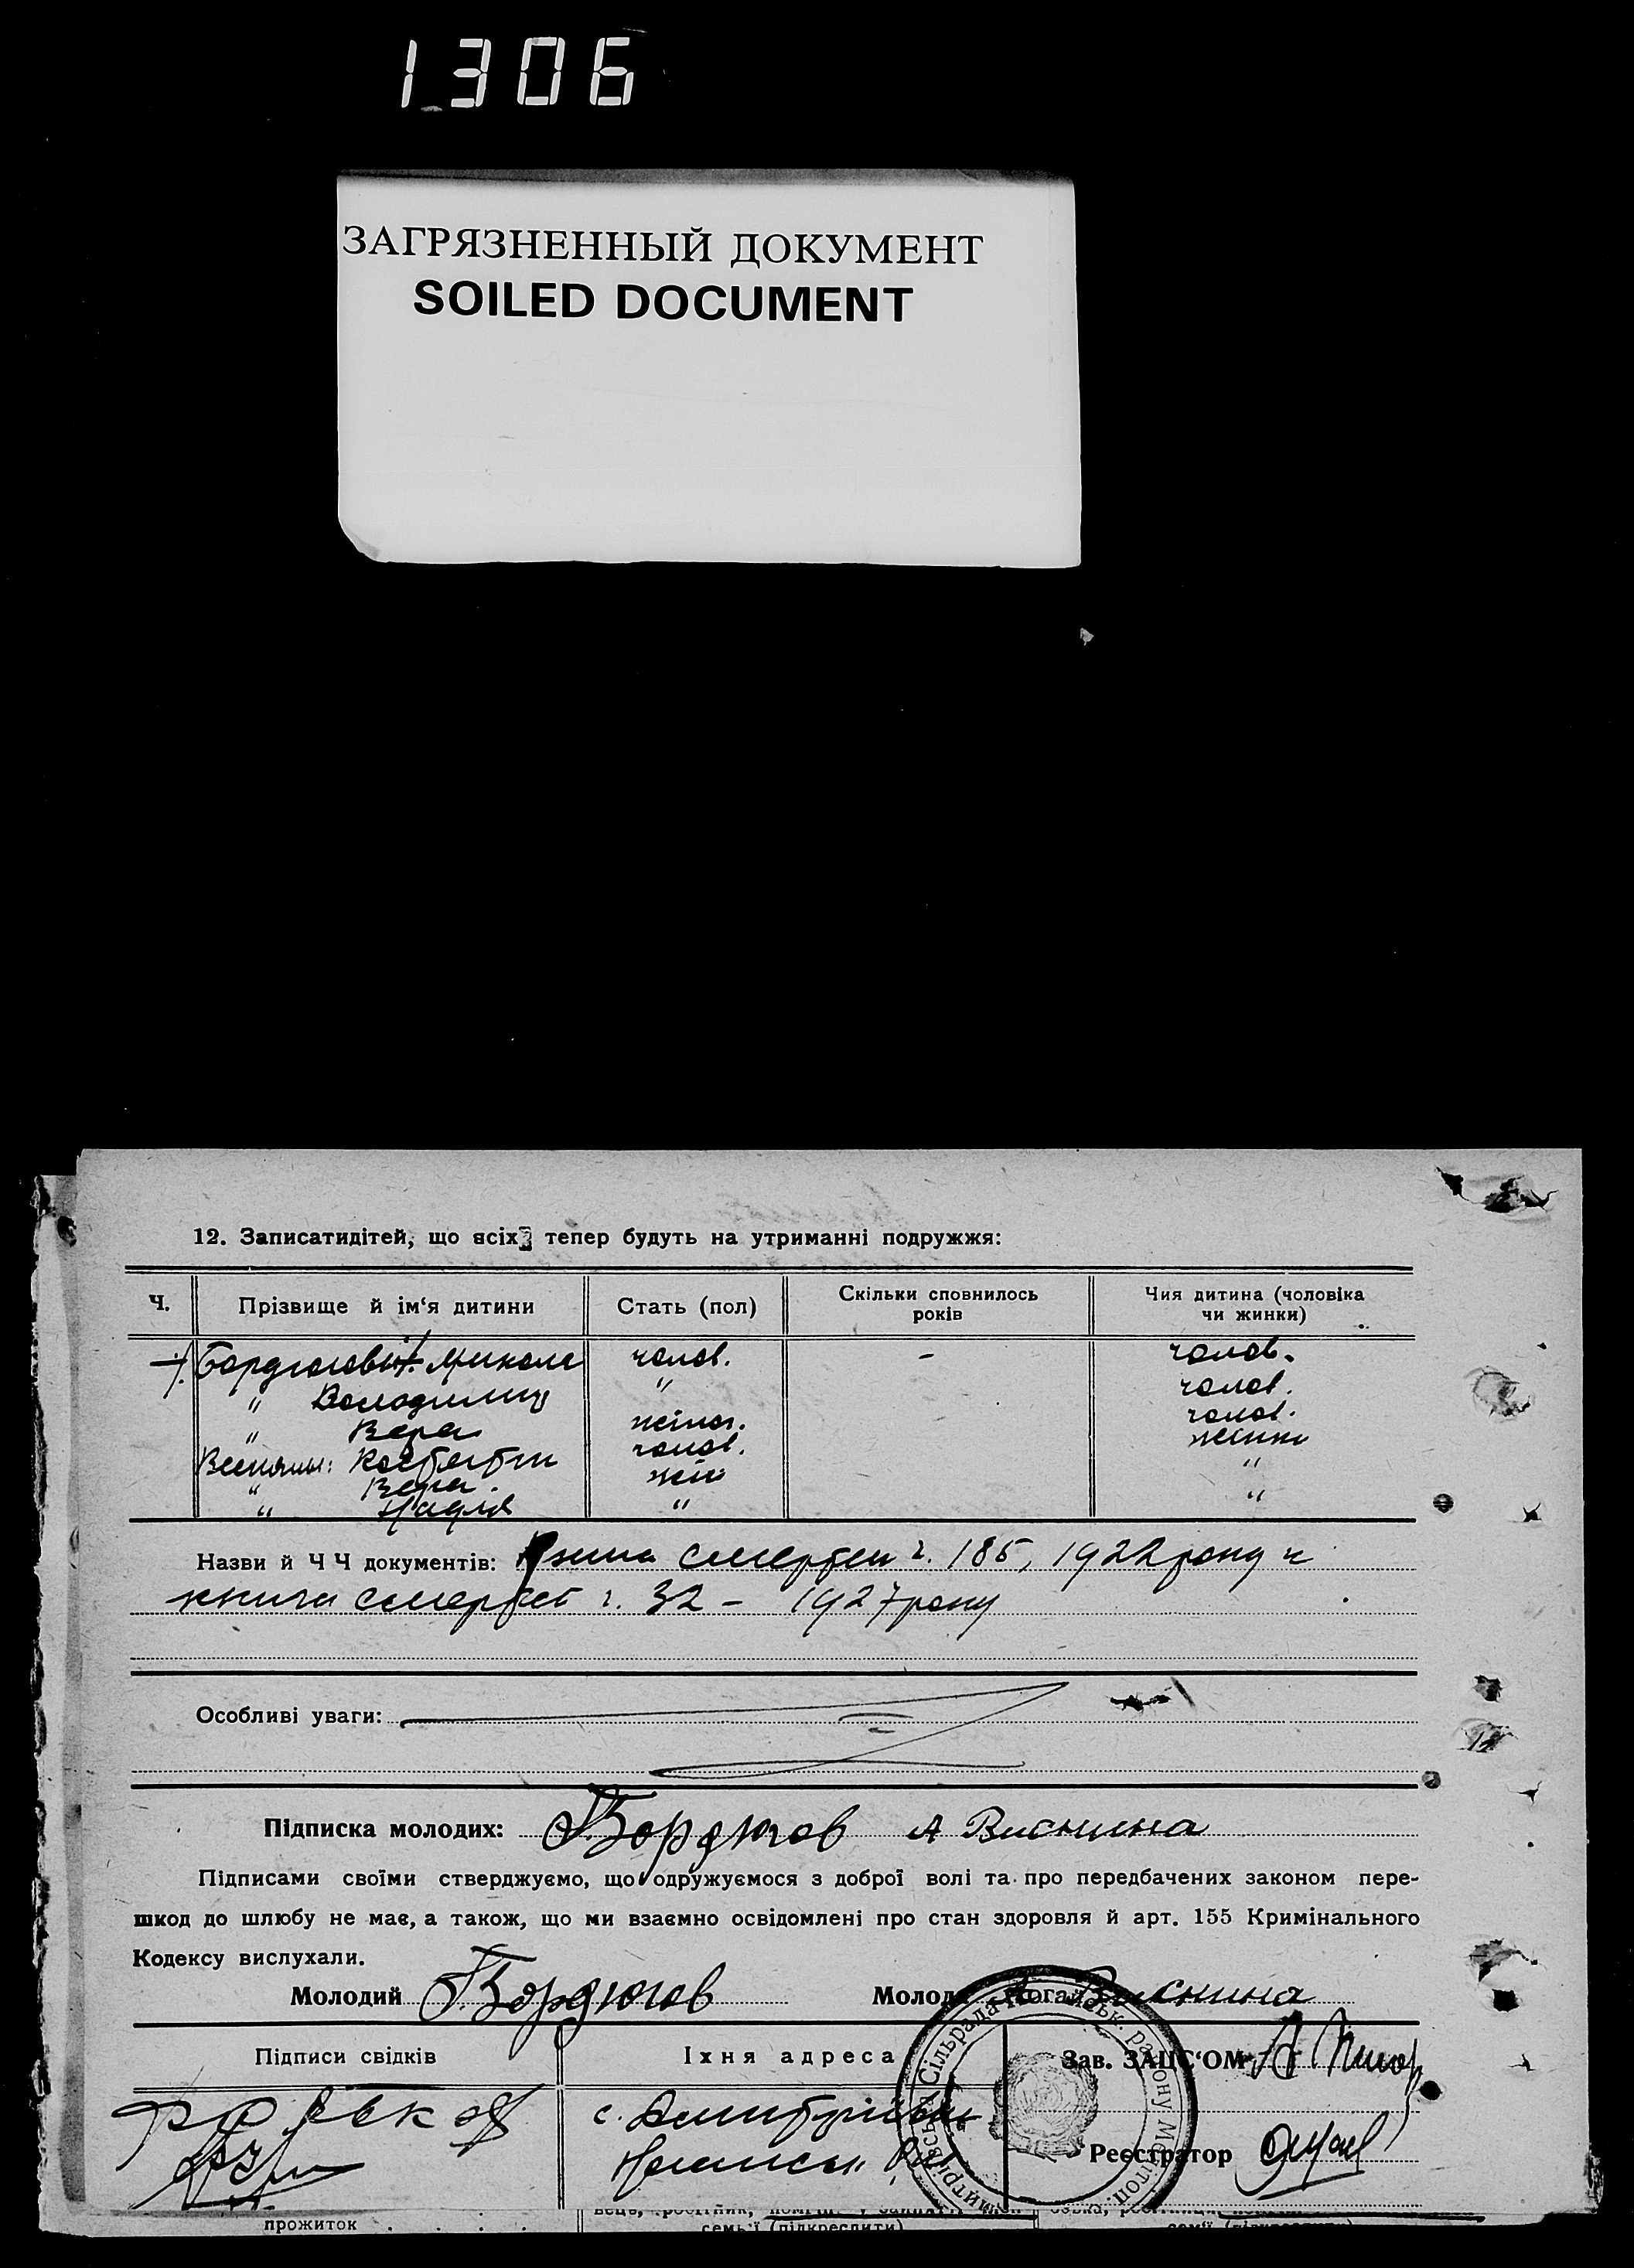 1306
ЗАГРЯЗНЕННЫЙ ДОКУМЕНТ
SOILED DOCUMENT
12. Записатидітей, що всіх тепер будуть на утриманні подружжя:
Ч. Прізвище й ім‘я дитини Стать (пол) Скільки сповнилось років Чия дитина (чоловіка чи жинки)
Микола чолов. - чолов.
" Володимир " чолов.
" Вера жіноч. чолов.
Костянтин чолов. жінки
" Вера. жін "
" Надія " "
Назви й Ч Ч документів: Книга смертей ч. 185, 1922 року и
книга смертей ч. 32 - 1927 року
Особливі уваги:
Підписка молодих: Бордюгов А Виснина
Підписами своїми стверджуємо, що одружуємося з доброї волі та про передбачених законом пере-
шкод до шлюбу не має, а також, що ми взаємно освідомлені про стан здоровля й арт. 155 Кримінального
Кодексу вислухали.
Молодий Бордюгов Молода Виснина
Підписи свідків Їхня адреса Зав. ЗАЦС‘ОМ
с. Дмитріївка
Реєстратор
Сільрада Ногайськ. району Мелітоп.
прожиток
семьї (підкреслити)